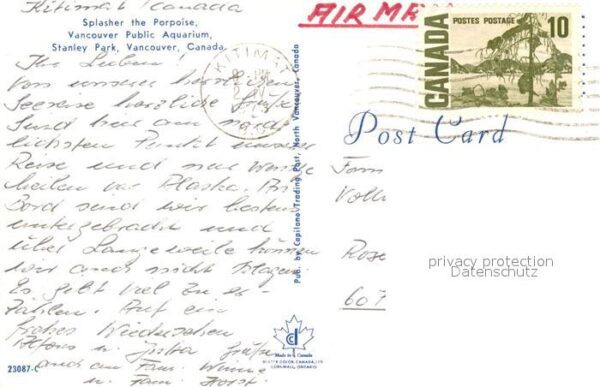 Kitimat / Canada
AIR MA
Splasher the Porpoise,
Vancouver Public Aquarium,
Stanley Park, Vancouver, Canada.
Ihr Lieben!
Von unserer herrlichen
Seereise herzliche Grüße
Sind hier am nörd-
lichsten Punkt unserer
Reise und nur wenige
Meilen vor Alaska. An
Bord sind wir bestens
untergebracht und
über Langeweile können
wir auch nicht klagen.
Es gibt viel zu er-
zählen. Auf ein
frohes Wiedersehen
Grüße
und an Fam.
u. Fam. Horst.
23087-C
Pub. by Capilano Trading Post, North Vancouver, Canada
KITIMAT
CANADA
POSTES POSTAGE
10
Post Card
Fam
Rose
607
privacy protection
Datenschutz
Made in Canada
CORNWALL, ONTARIO